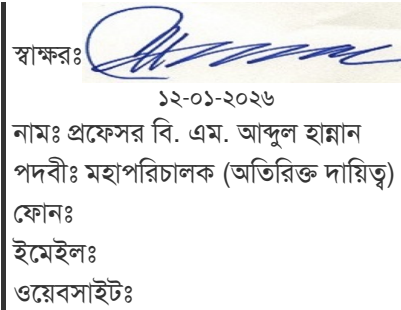 স্বাক্ষরঃ
১২-০১-২০২৬
নামঃ প্রফেসর বি. এম. আব্দুল হান্নান
পদবীঃ মহাপরিচালক (অতিরিক্ত দায়িত্ব)
ফোনঃ
ইমেইলঃ
ওয়েবসাইটঃ